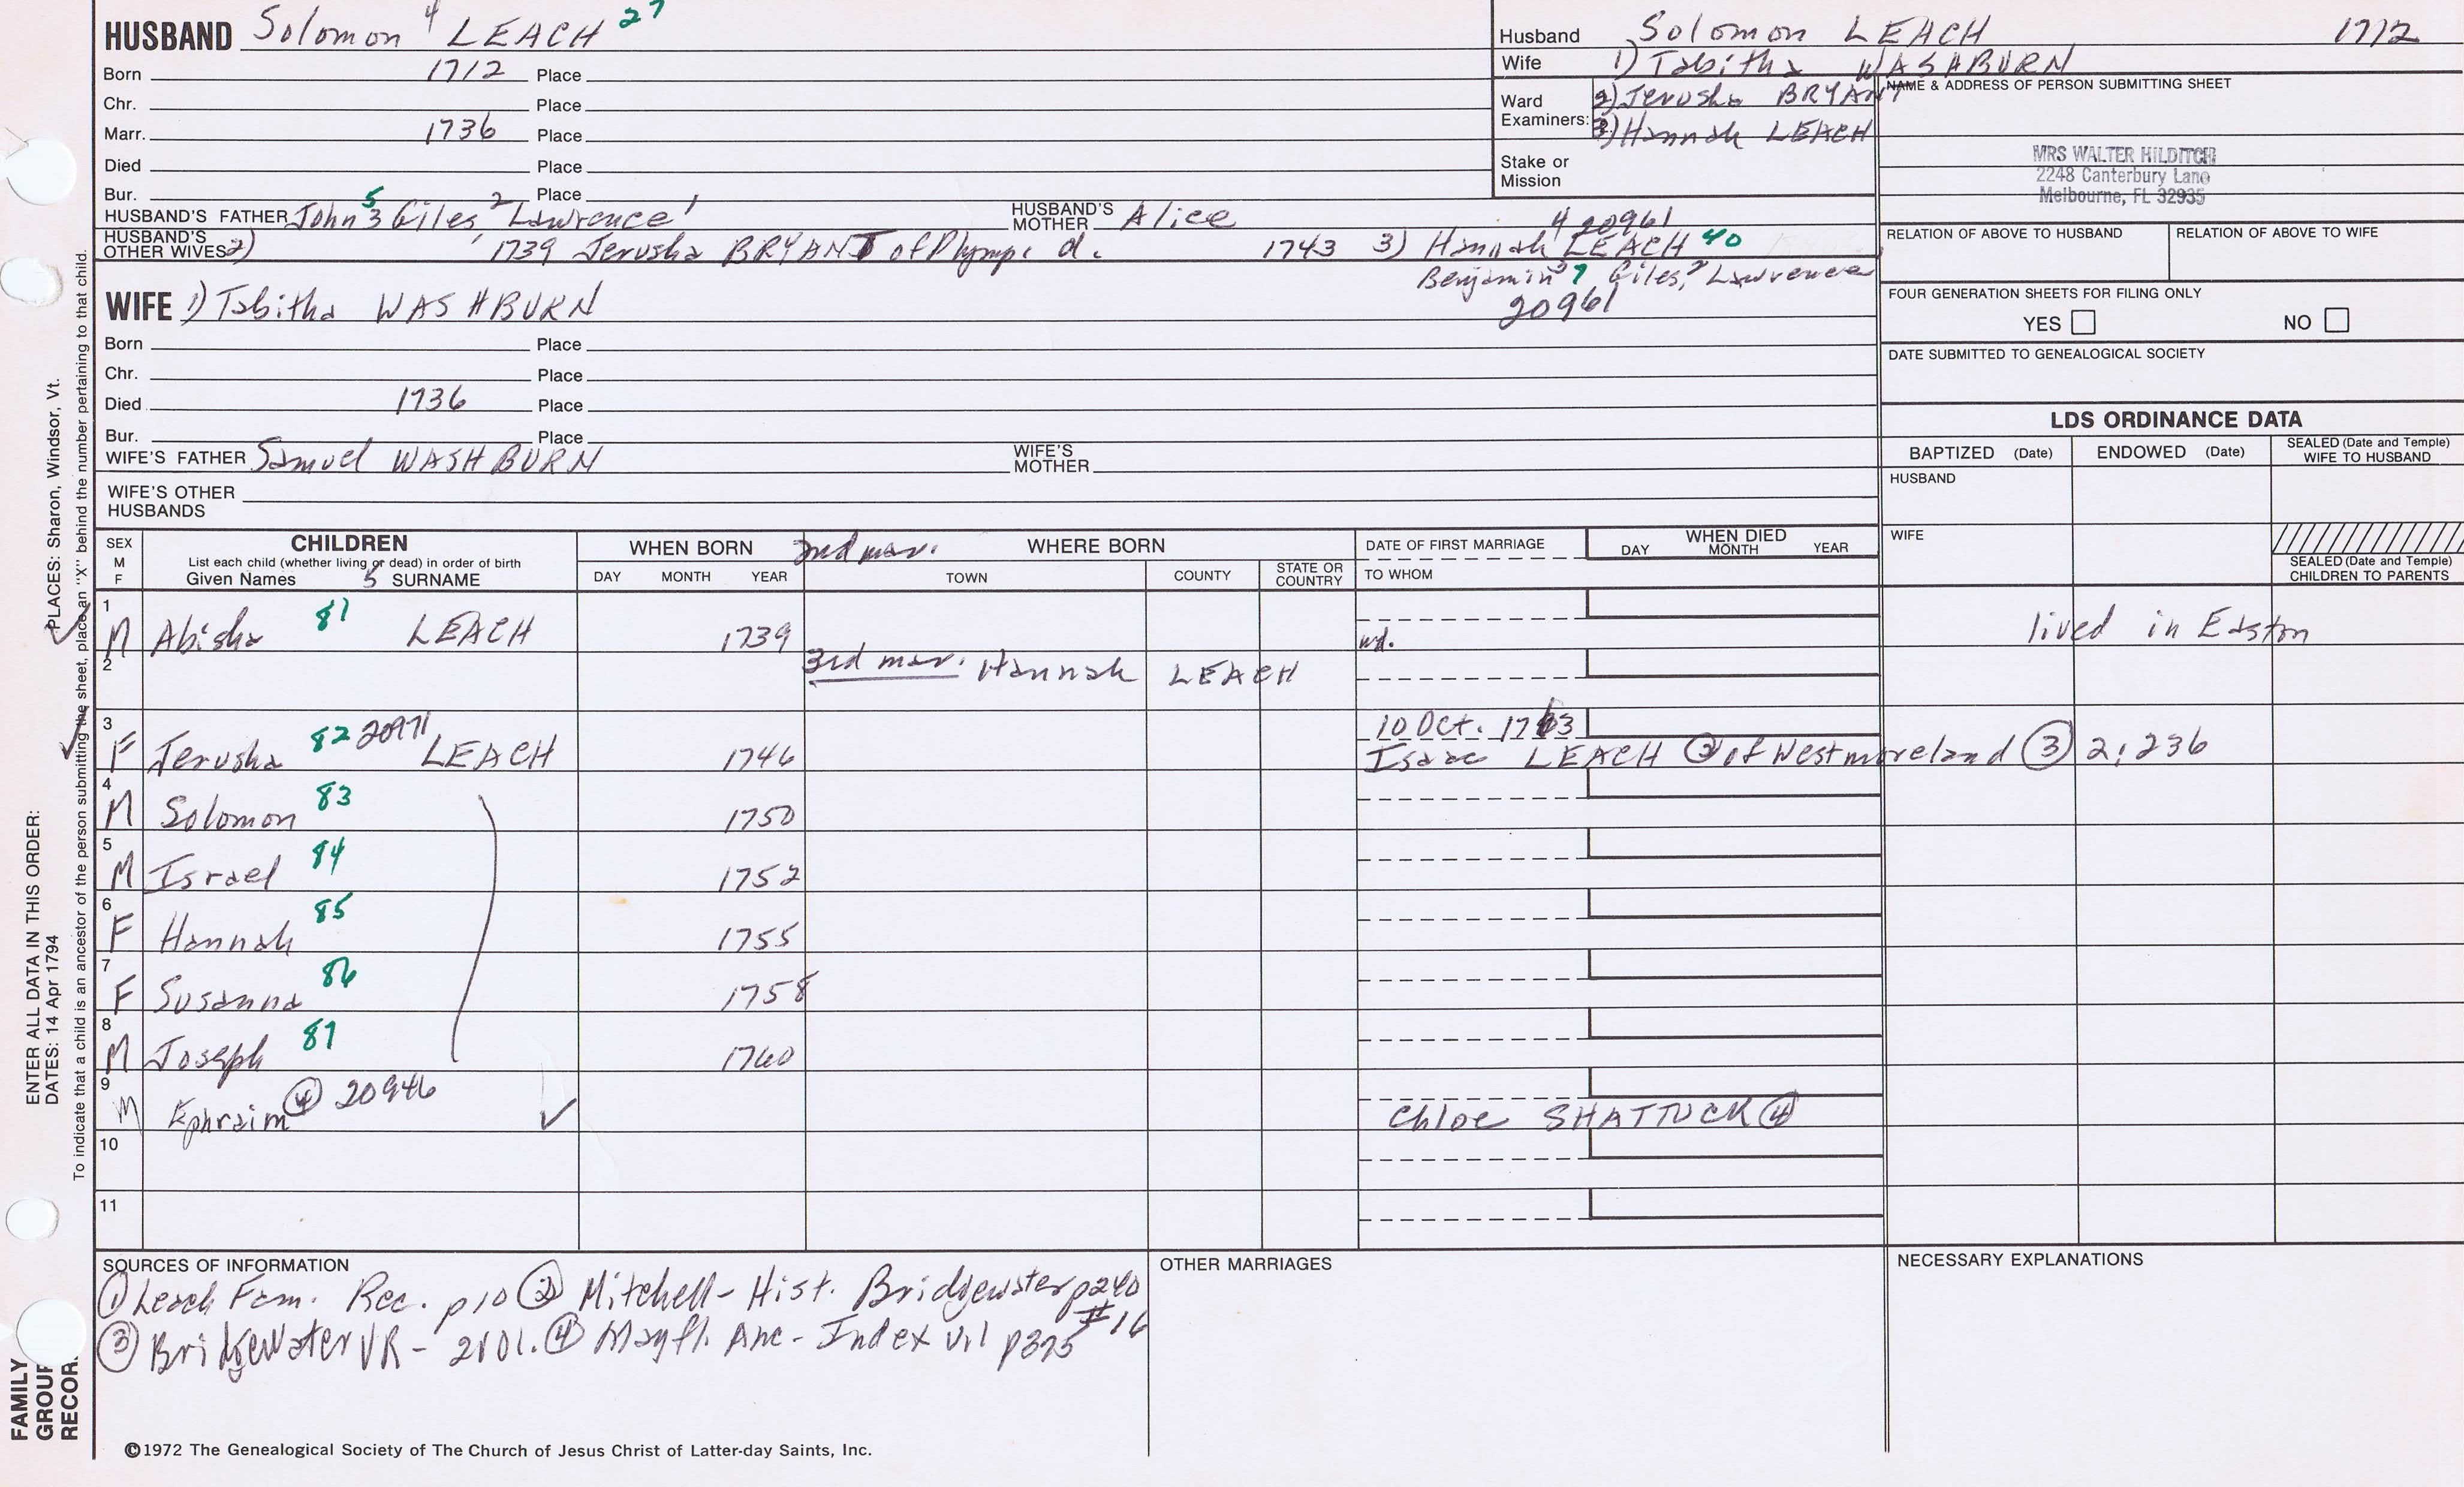 HUSBAND Solomon 4 LEACH 27
Born 1712 Place
Chr. Place
Marr. 1736 Place
Died Place
Bur. Place
HUSBAND'S FATHER John 5 3 Giles, 2 Lawrence 1 HUSBAND'S MOTHER Alice
HUSBAND'S OTHER WIVES 2) 1739 Jerusha BRYANT of Plymp. d. 1743 3) Hannah 4 LEACH 40 20961
Benjamin 3 7 Giles, 2 Lawrence
20961
Husband Solomon LEACH 1712
Wife 1) Tabitha WASHBURN
Ward Examiners: 2) Jerusha BRYANT
3) Hannah LEACH
Stake or Mission
NAME & ADDRESS OF PERSON SUBMITTING SHEET
MRS WALTER HILDITCH
2248 Canterbury Lane
Melbourne, FL 32935
RELATION OF ABOVE TO HUSBAND RELATION OF ABOVE TO WIFE
FOUR GENERATION SHEETS FOR FILING ONLY
YES NO
DATE SUBMITTED TO GENEALOGICAL SOCIETY
WIFE 1) Tabitha WASHBURN
Born Place
Chr. Place
Died 1736 Place
Bur. Place
WIFE'S FATHER Samuel WASHBURN WIFE'S MOTHER
WIFE'S OTHER HUSBANDS
LDS ORDINANCE DATA
BAPTIZED (Date) ENDOWED (Date) SEALED (Date and Temple) WIFE TO HUSBAND
HUSBAND
WIFE
SEALED (Date and Temple) CHILDREN TO PARENTS
SEX M F
CHILDREN
List each child (whether living or dead) in order of birth
Given Names 5 SURNAME
WHEN BORN
DAY MONTH YEAR
2nd mar. WHERE BORN
TOWN COUNTY STATE OR COUNTRY
DATE OF FIRST MARRIAGE
TO WHOM
WHEN DIED
DAY MONTH YEAR
1 M Abisha 81 LEACH 1739 wd. lived in Easton
2 3rd mar. Hannah LEACH
3 F Jerusha 82 20971 LEACH 1746 10 Oct. 1763
Isaac LEACH ③ of Westmoreland ③ 2:236
4 M Solomon 83 1750
5 M Israel 84 1752
6 F Hannah 85 1755
7 F Susanna 86 1758
8 M Joseph 87 1760
9 M Ephraim ④ 20946 ✓ Chloe SHATTUCK ④
10
11
SOURCES OF INFORMATION
① Leach Fam. Rec. p10 ② Mitchell - Hist. Bridgewater p240
③ Bridgewater VR - 2vol. ④ Mayfl. Anc - Index vol p375 #16
OTHER MARRIAGES
NECESSARY EXPLANATIONS
©1972 The Genealogical Society of The Church of Jesus Christ of Latter-day Saints, Inc.
FAMILY GROUP RECOR
ENTER ALL DATA IN THIS ORDER:
DATES: 14 Apr 1794
PLACES: Sharon, Windsor, Vt.
To indicate that a child is an ancestor of the person submitting the sheet, place an "X" behind the number pertaining to that child.